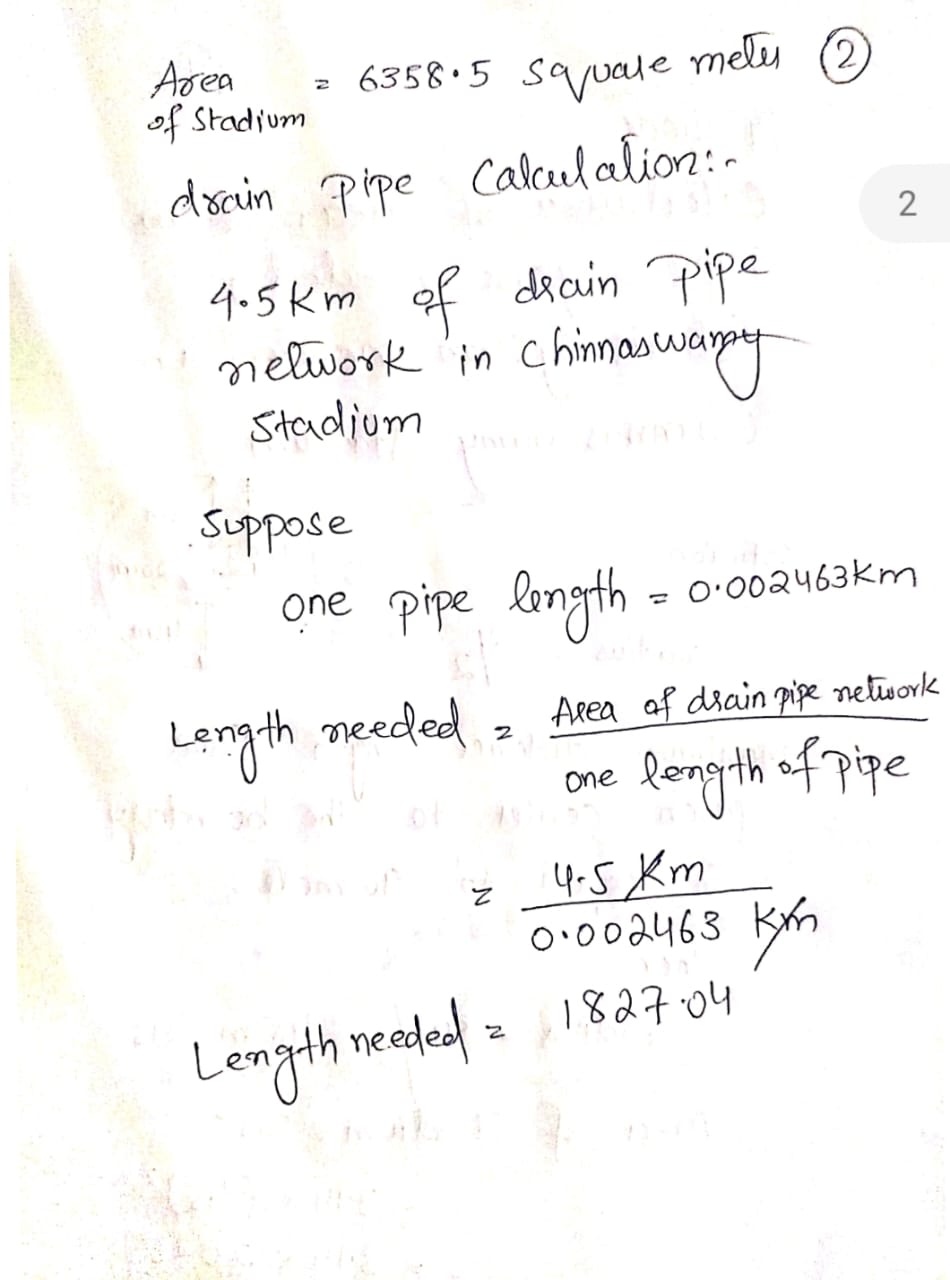 Area = 6358.5 square meter ②
of Stadium
drain Pipe Calculation:-
2
4.5 Km of drain Pipe
network in Chinnaswamy
Stadium
Suppose
one pipe length = 0.002463Km
Length needed = Area of drain pipe network
one length of Pipe
= 4.5 Km
0.002463 Km
Length needed = 1827.04